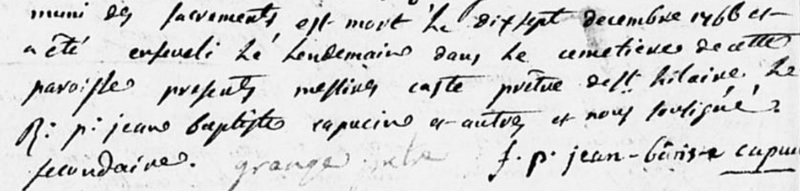 muni des sacrements est mort le dix sept decembre 1766 et
a été enseveli le lendemain dans le cemetiere de cette
paroisse presents messires caste prêtre de st hilaire le
R: p: jean baptiste capucin et autres et nous soussigné
secondaire. grange f. p. jean-bâtiste capuci